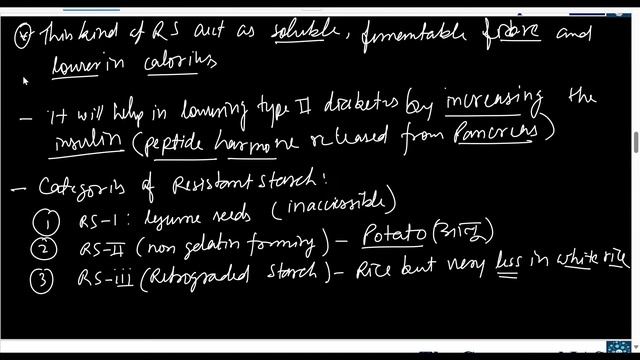 This kind of RS act as soluble, fermentable fibre and
lower in calories
- It will help in lowering type II diabetes by increasing the
insulin (peptide harmone released from Pancreas)
- Categories of Resistant starch:
① RS-I: legume seeds (inaccessible)
② RS-II (non gelatin forming) - Potato (आलू)
③ RS-iii (Retrograded starch) - Rice but very less in white rice